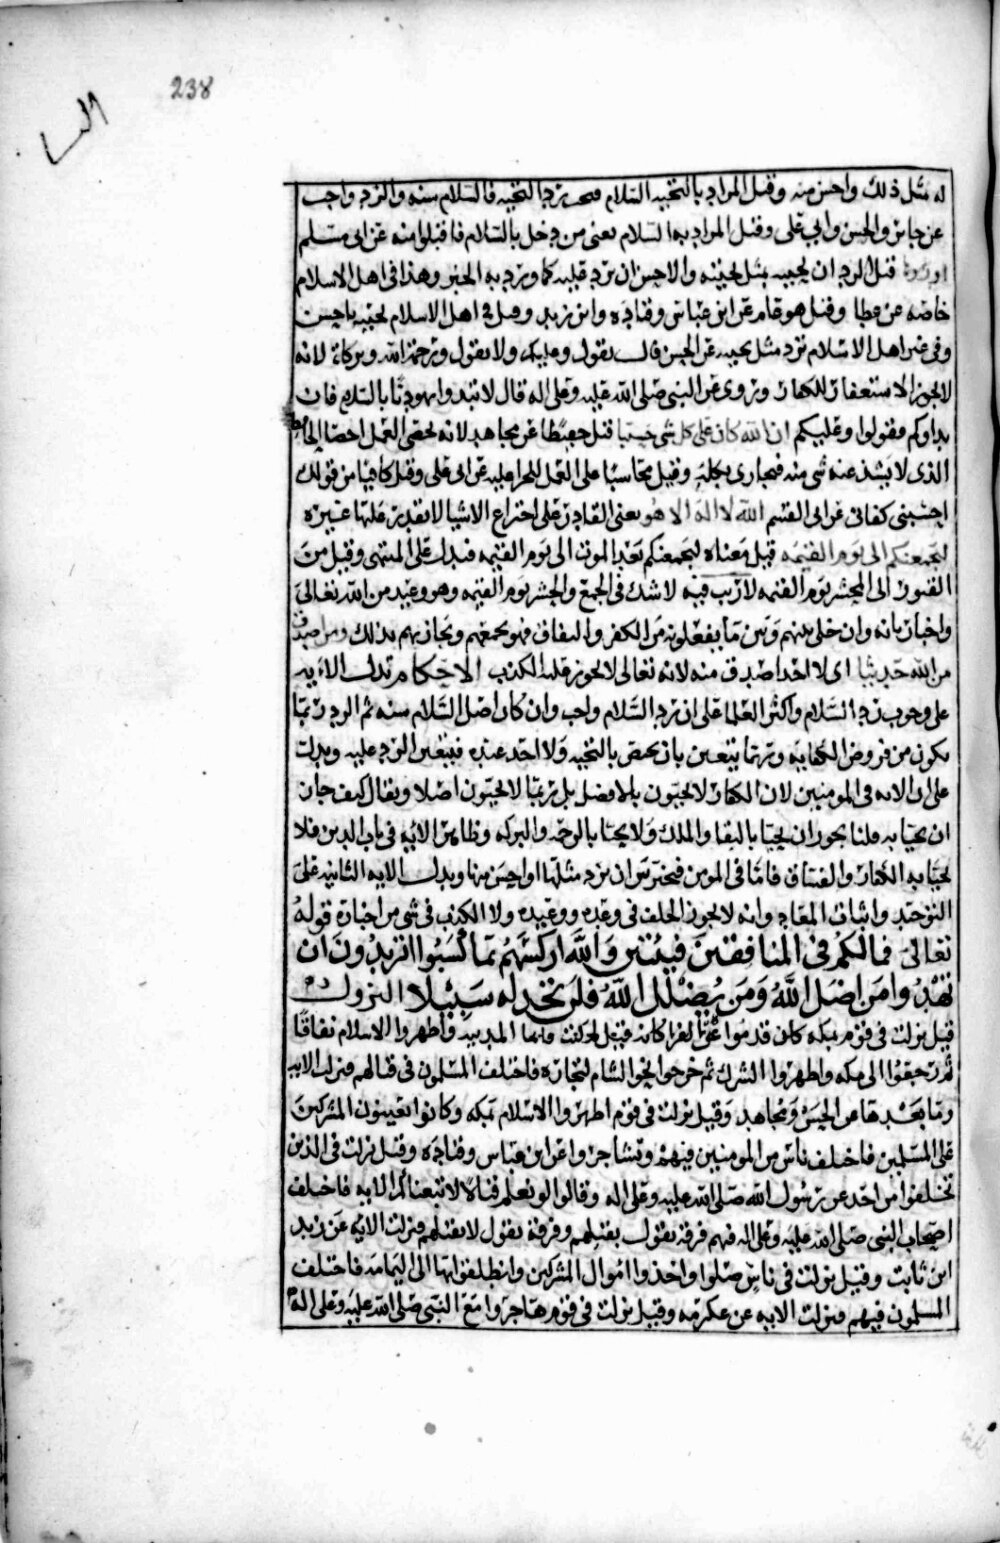 238
النسا
له مثل ذلك واحسن منه وقيل المراد بالتحيه السلام فيجب رد التحيه فالسلام سنه والرد واجب
عن جابر والحسن وابي علي وقيل المراد به السلام يعني من دخل بالسلام فاقبلوا منه عن ابي مسلم
او ردوها قيل الرد ان يجيبه بمثل تحيته والاحسن ان يزد عليه كما ورد به الخبر وهذا في اهل الاسلام
خاصه عن عطا وقيل هو عام عن ابن عباس وقتاده وابن زيد وقيل في اهل الاسلام تحيته باحسن
وفي غير اهل الاسلام ترد مثل تحيته عن الحسن قال يقول وعليك ولا يقول ورحمة الله وبركاته لانه
لا يجوز الاستغفار للكفار وتروى عن النبي صلى الله عليه وعلى اله قال لا تبدوا يهوديًا بالسلام فان
بداوكم فقولوا وعليكم ان الله كان على كل شي حسيبا قيل حفيظا عن مجاهد لانه يحصي العمل احصا
الذي لا يشذ عنه شي منه فيجازى بكله وقيل محاسبا على العمل للجزا عليه عن ابي علي وقيل كافيا من قولك
احسبني كفاني عن ابي القسم الله لا اله الا هو يعني القادر على اختراع الاشيا لا يقدر عليها غيره
ليجمعنكم الى يوم القيمه قيل معناه ليجمعنكم بعد الموت الى يوم القيمه فيدل على المنتهى وقيل من
القبور الى المحشر يوم القيمه لا ريب فيه لا شك في الجمع والحشر يوم القيمه وهو وعيد من الله تعالى
واخبار بانه وان خلى بينهم وبين ما يفعلونه من الكفر والنفاق فهو يجمعهم ويجازيهم بذلك ومن اصدق
من الله حديثا اي لا احد اصدق منه لانه تعالى لا يجوز عليه الكذب الاحكام تدل الاءيه
على وجوب رد السلام واكثر العلما على ان رد السلام واجب وان كان اصل السلام سنه ثم الرد ربما
يكون من فروض الكفايه وربما يتعين بان يخص بالتحيه ولا احد عنده فيتعين الرد عليه ويدل
على ان الايه في المومنين لان الكفار لا يحيون بالافضل بل ربما لا يحيون اصلا ويقال كيف جاز
ان يحيا به قلنا يجوز ان يحيا بالبقا والملك ولا يحيا بالرحمه والبركه وظاهر الايه في باب الدين فلا
يحيا به الكفار والفساق فاما في المومن فيخير بين ان يرد مثلها او احسن منها ويدل الايه الثانيه على
التوحيد واثبات المعاد وانه لا يجوز الخلف في وعده ووعيده ولا الكذب في شي من اخباره قوله
تعالى فمالكم في المنافقين فيتين والله اركسهم بما كسبوا اتريدون ان
تهدوا من اضل الله ومن يضلل الله فلن تجد له سبيلا النزول
قيل نزلت في قوم بمكه قدموا المدينه واظهروا الاسلام نفاقًا
ثم رجعوا الى مكه واظهروا الشرك ثم خرجوا نحو الشام لتجاره فاختلف المسلمون في قتالهم فنزلت الايه
وما بعدها عن الحسن ومجاهد وقيل نزلت في قوم اظهروا الاسلام بمكه وكانوا يعينون المشركين
على المسلمين فاختلف ناس من المومنين فيهم وتشاجروا عن ابن عباس وقتاده وقيل نزلت في الذين
تخلفوا من احد عن رسول الله صلى الله عليه وعلى اله وقالوا لو نعلم قتالا لاتبعناكم الايه فاختلف
اصحاب النبي صلى الله عليه وعلى اله فيهم فرقة تقول بقتلهم وفرقة تقول لا نقتلهم فنزلت الايه عن زيد
ابن ثابت وقيل نزلت في ناس صلوا واخذوا اموال المشركين وانطلقوا بها الى اليمامه فاختلف
المسلمون فيهم فنزلت الايه عن عكرمه وقيل نزلت في قوم هاجروا مع النبي صلى الله عليه وعلى اله